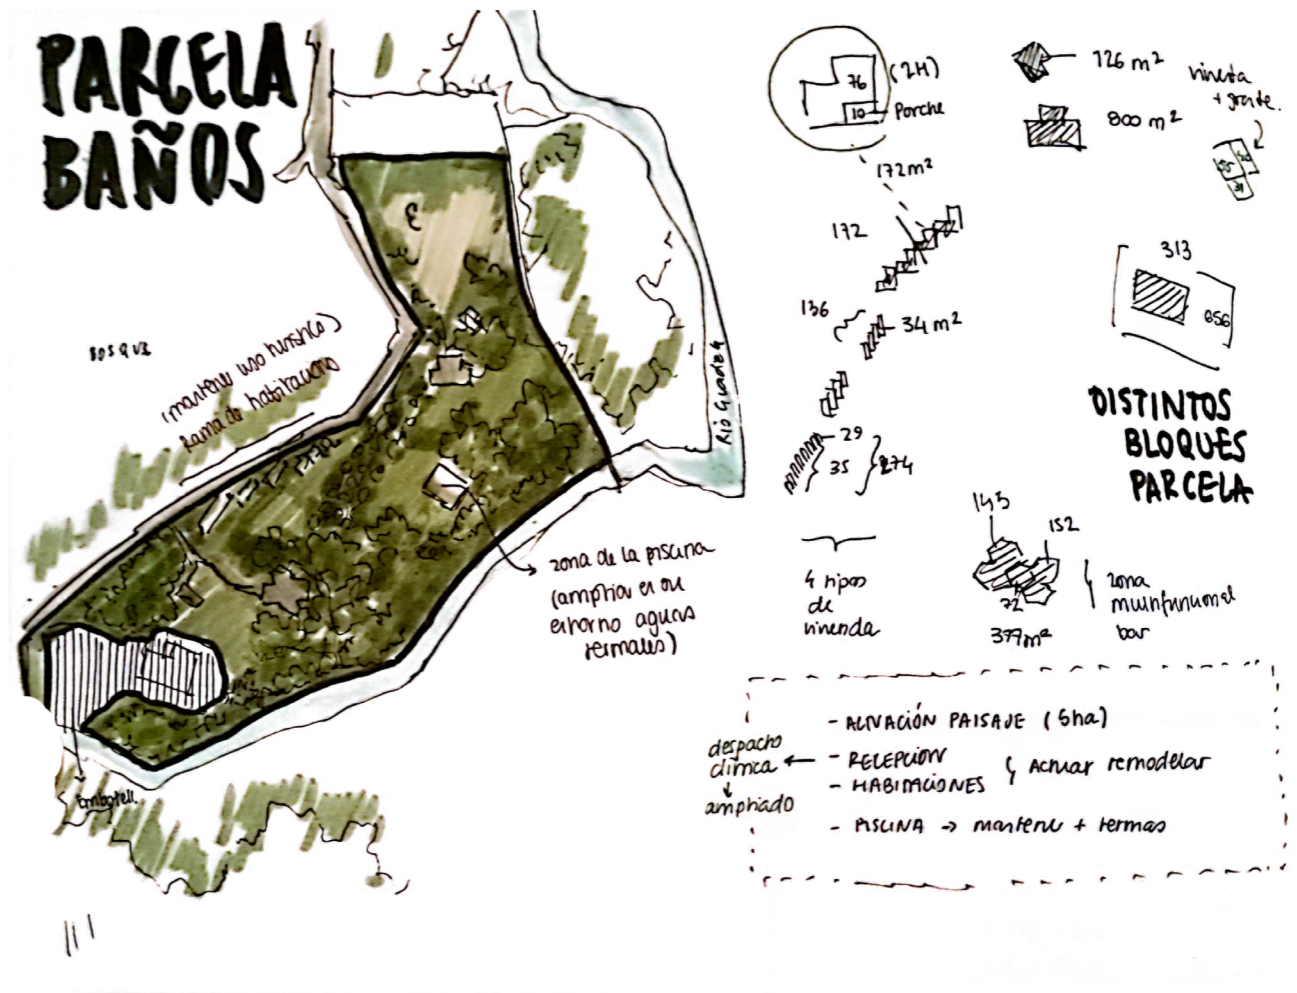 PARCELA
BAÑOS
BOSQUE
(mantener uso turístico)
rama de habitaciones
Río Guada
zona de la piscina
(ampliar en su
entorno aguas
termales)
Embotell.
76
(2H)
10
Porche
172 m²
172
136
34 m²
29
35
274
4 tipos
de
vivienda
126 m²
800 m²
vivienda
+ grande.
313
656
DISTINTOS
BLOQUES
PARCELA
143
152
72
377 m²
zona
multifuncional
bar
- ACTIVACIÓN PAISAJE (5ha)
- RECEPCIÓN
- HABITACIONES
Actuar remodelar
- PISCINA → mantener + termas
despacho
clínica
ampliado